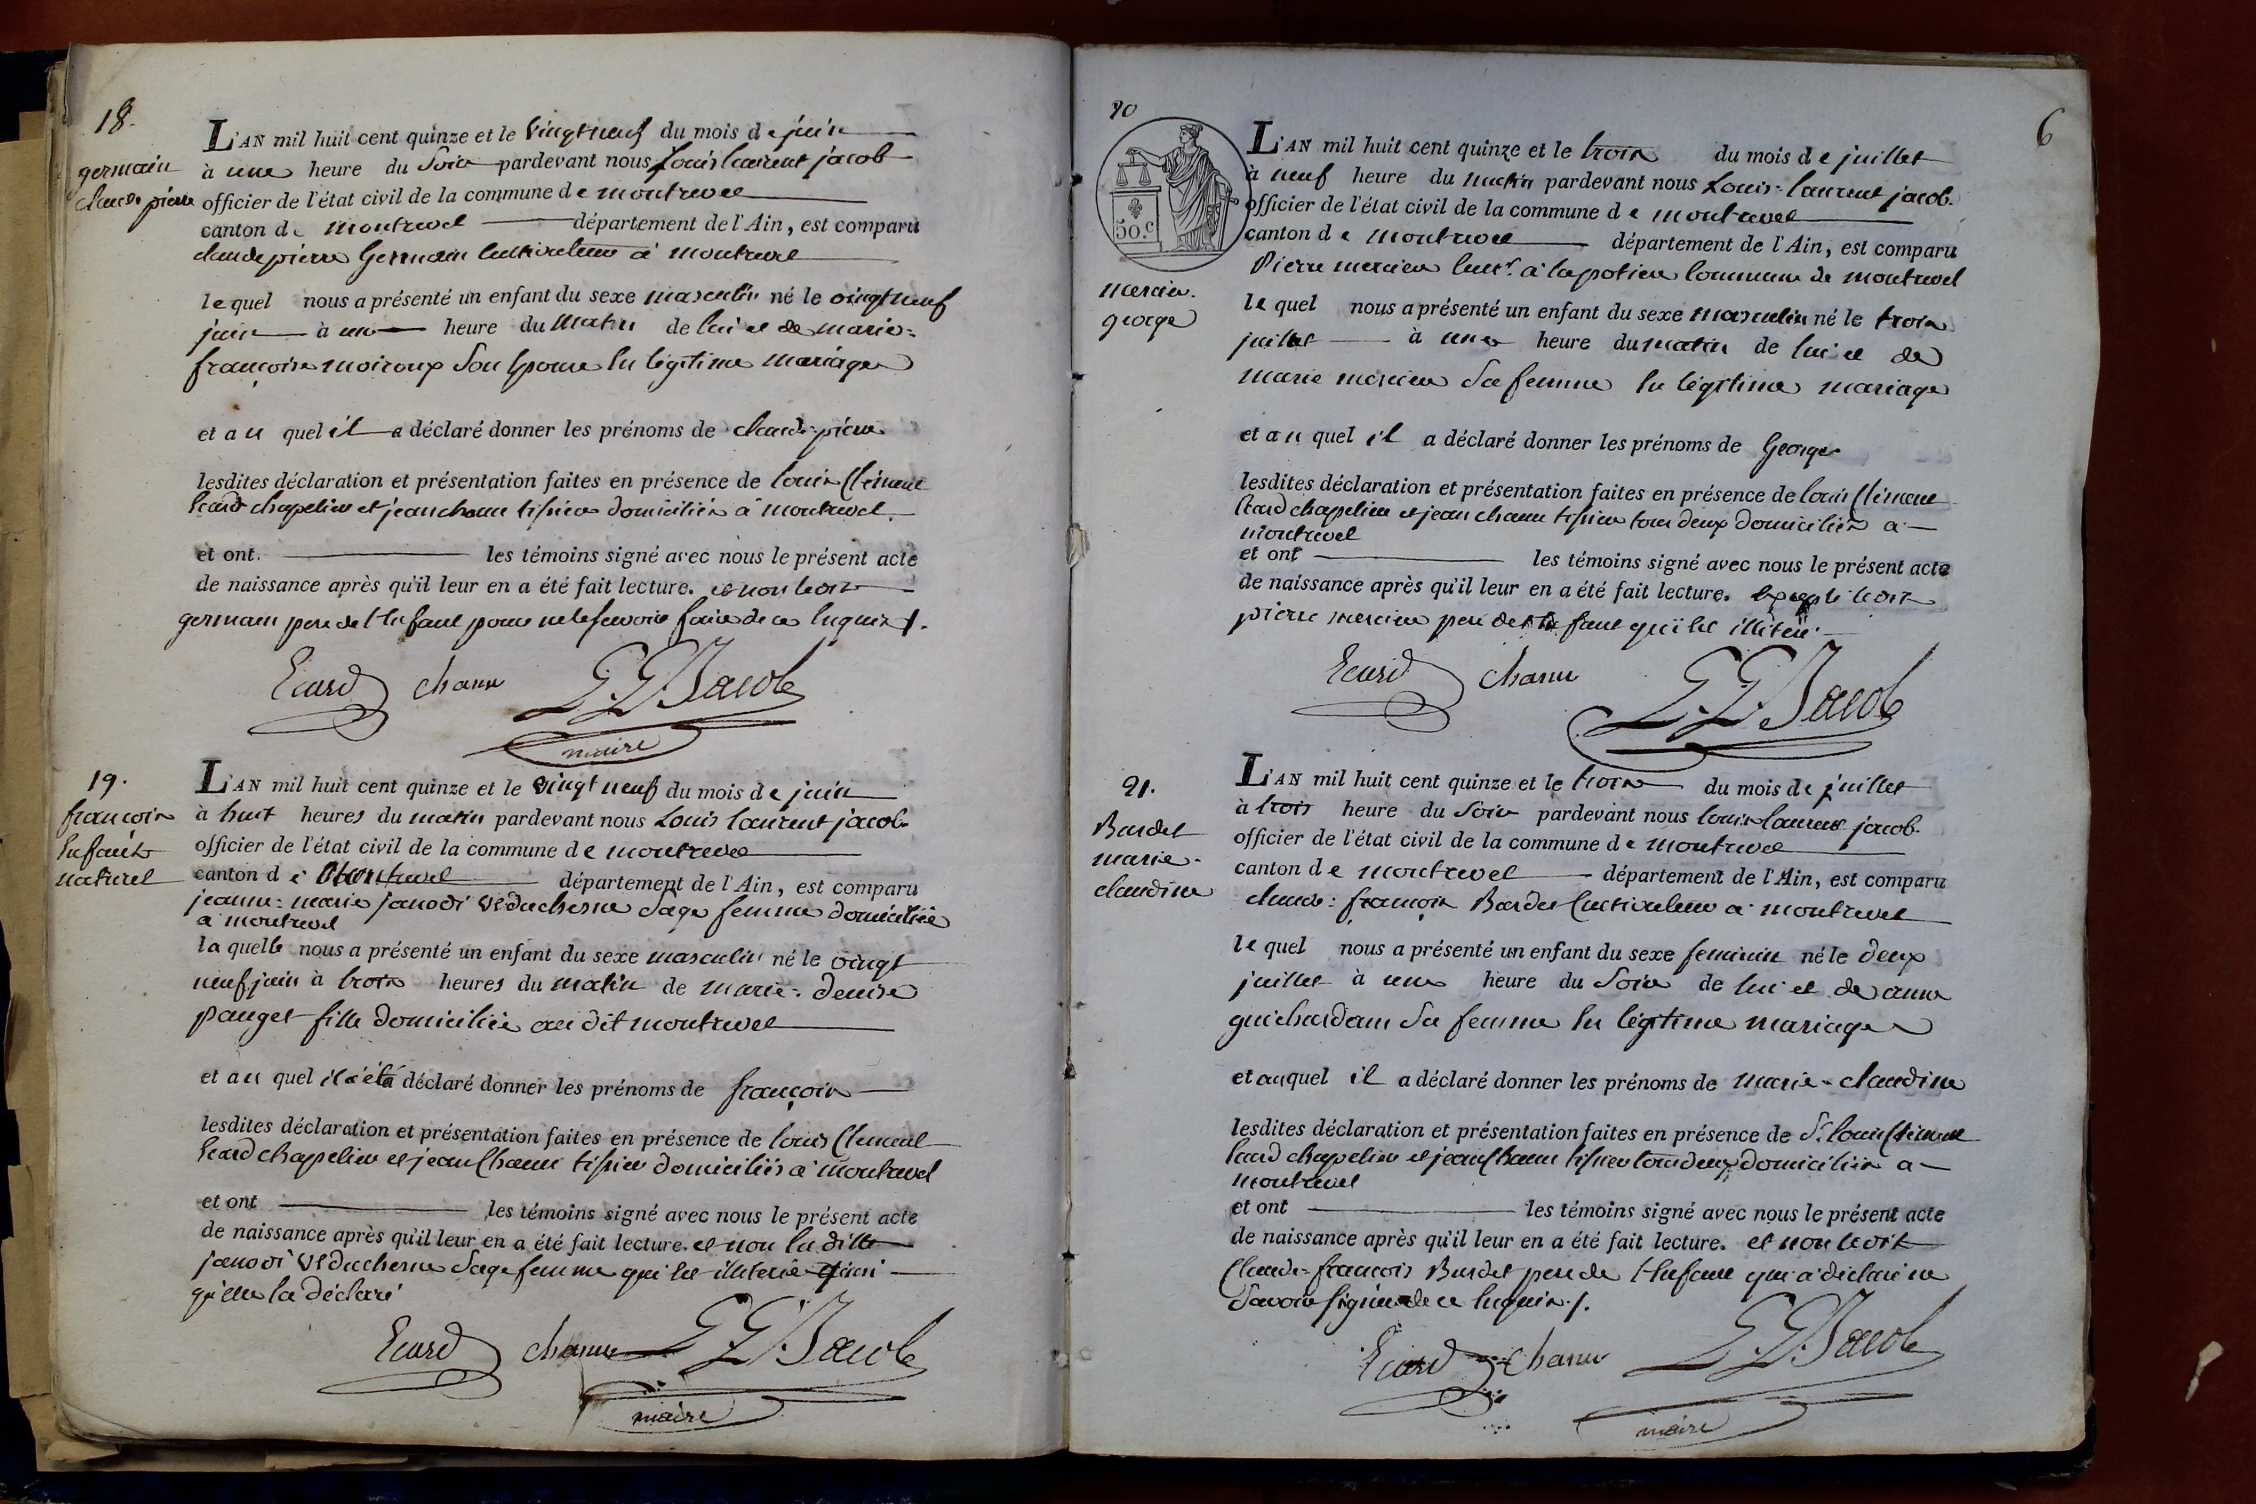 18.
germain
claude pierre
L'AN mil huit cent quinze et le vingt neuf du mois de juin
à une heure du Soir pardevant nous Louis laurent jacob
officier de l'état civil de la commune de montrevel
canton de montrevel département de l'Ain, est comparu
claude pierre Germain Cultivateur à montrevel
lequel nous a présenté un enfant du sexe masculin né le vingt neuf
juin à une heure du Matin de lui et de marie=
françoise moiroux Son Epouse En légitime mariage
et au quel il a déclaré donner les prénoms de claude=pierre
lesdites déclaration et présentation faites en présence de louis Clément
Ecard chapelier et jean chanu tissier domiciliés à montrevel
et ont les témoins signé avec nous le présent acte
de naissance après qu'il leur en a été fait lecture. et non ledit
germain pere de l'Enfant pour ne le savoir faire de ce Enquis /.
Ecard chanu L. L. Jacob
maire
19.
françois
Enfant
naturel
L'AN mil huit cent quinze et le vingt neuf du mois de juin
à huit heures du matin pardevant nous Louis laurent jacob
officier de l'état civil de la commune de montrevel
canton de Montrevel département de l'Ain, est comparu
jeanne=marie janodi Ve duchesne Sage femme domiciliée
à montrevel
la quelle nous a présenté un enfant du sexe masculin né le vingt
neuf juin à trois heures du matin de marie=denise
pauget fille domiciliée au dit montrevel
et au quel il a été déclaré donner les prénoms de françois
lesdites déclaration et présentation faites en présence de louis Clement
Ecard chapelier et jean Chanu tissier domiciliés à montrevel
et ont les témoins signé avec nous le présent acte
de naissance après qu'il leur en a été fait lecture. et non la ditte
janodi Ve duchesne Sage femme qui Est illiterée ainsi
qu'elle la déclaré
Ecard chanu L. L. Jacob
maire
6
20
50.c
mercier
george
L'AN mil huit cent quinze et le trois du mois de juillet
à neuf heure du matin pardevant nous Louis=laurent jacob.
officier de l'état civil de la commune de montrevel
canton de montrevel département de l'Ain, est comparu
Pierre mercier Cult.r à la potier Commune de montrevel
lequel nous a présenté un enfant du sexe masculin né le trois
juillet à une heure du matin de lui et de
marie mercier Sa femme En légitime mariage
et au quel il a déclaré donner les prénoms de George
lesdites déclaration et présentation faites en présence de louis Clément
Ecard chapelier et jean chanu tissier tous deux domiciliés à
montrevel
et ont les témoins signé avec nous le présent acte
de naissance après qu'il leur en a été fait lecture. Excepté ledit
pierre mercier pere de l'Enfant qui Est illiteré
Ecard chanu L. L. Jacob
21.
Bardet
marie=
claudine
L'AN mil huit cent quinze et le trois du mois de juillet
à trois heure du Soir pardevant nous louis laurent jacob.
officier de l'état civil de la commune de montrevel
canton de montrevel département de l'Ain, est comparu
claude=françois Bardet Cultivateur à montrevel
lequel nous a présenté un enfant du sexe feminin né le deux
juillet à une heure du Soir de lui et de anne
guichardan Sa femme En légitime mariage
et auquel il a déclaré donner les prénoms de marie=claudine
lesdites déclaration et présentation faites en présence de Sr louis Clément
Ecard chapelier et jean Chanu tissier tous deux domiciliés à
montrevel
et ont les témoins signé avec nous le présent acte
de naissance après qu'il leur en a été fait lecture. et non ledit
Claude=françois Bardet pere de l'Enfant qui a déclaré ne
Savoir signer de ce Enquis /.
Ecard chanu L. L. Jacob
maire